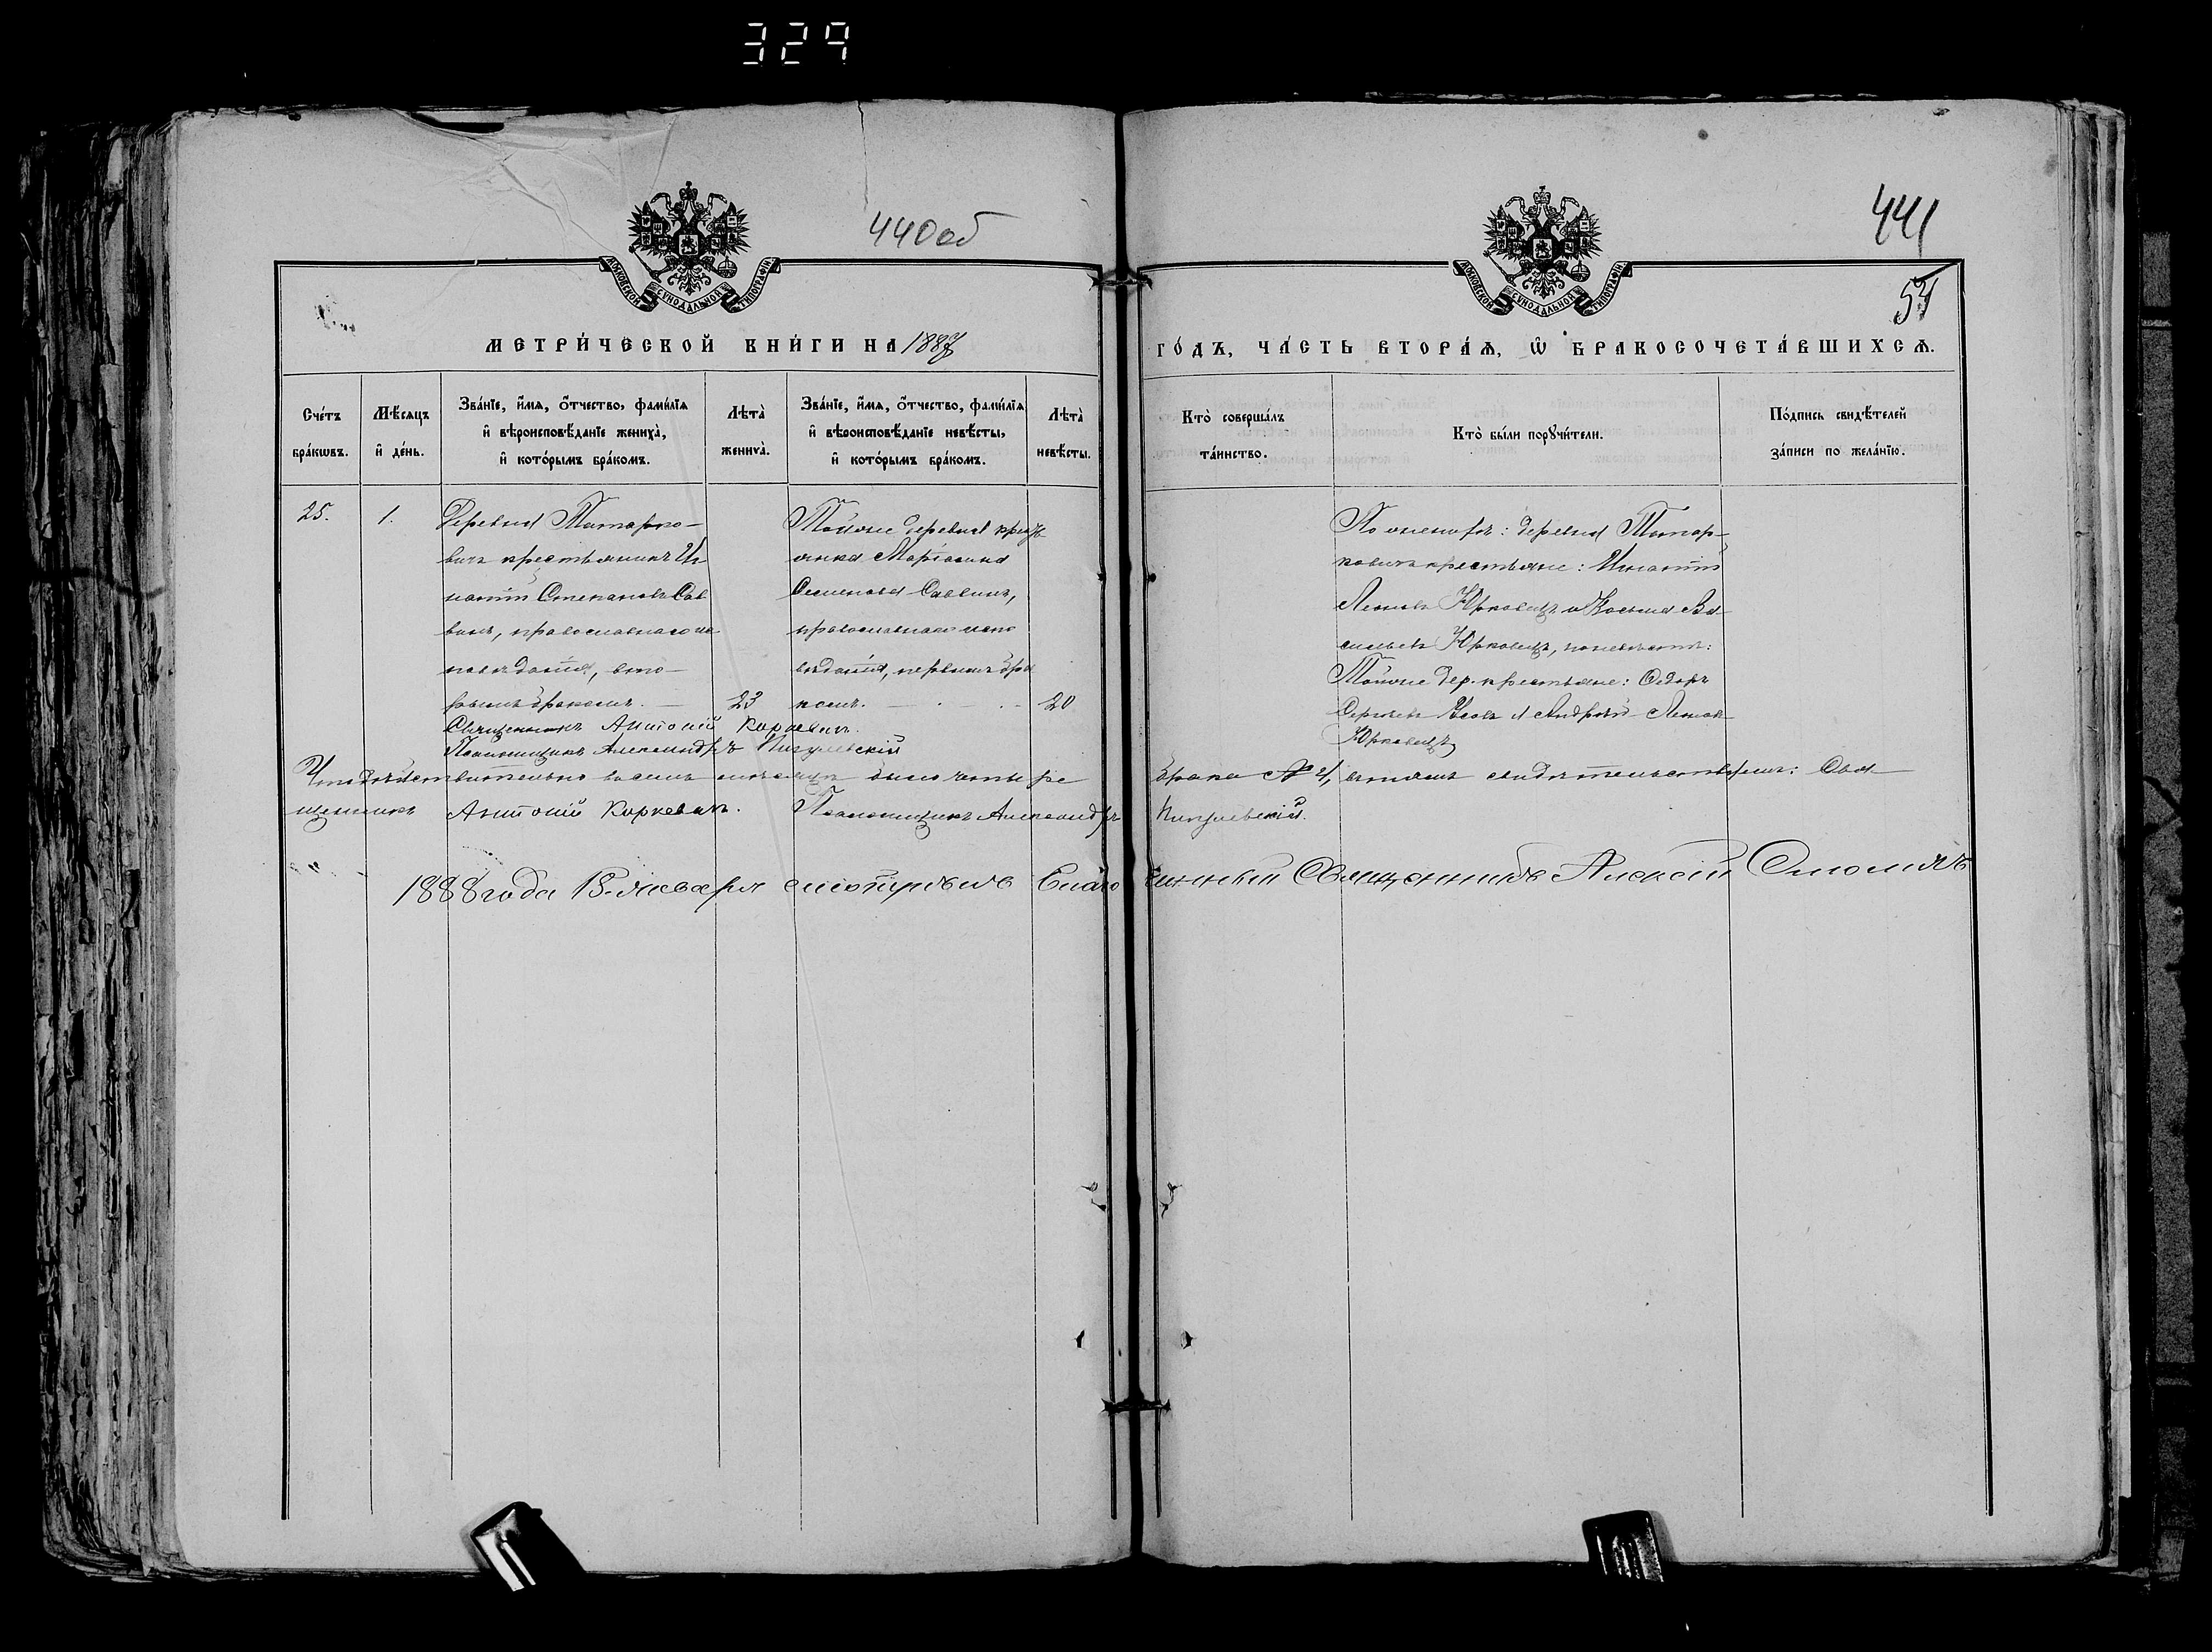 329
440об
441
54
МОСКОВСКОЙ СУНОДАЛЬНОЙ ТИПОГРАФІИ
МОСКОВСКОЙ СУНОДАЛЬНОЙ ТИПОГРАФІИ
МЕТРИ́ЧЕСКОЙ КНИ́ГИ НА 1887 ГО́ДЪ, ЧА́СТЬ ВТОРА́Ѧ, Ѡ҆ БРАКОСОЧЕТА́ВШИХСѦ.
Сче́тъ бра́кѡвъ.
Мѣ́сѧцъ и҆ де́нь.
Зва́нїе, и҆́мѧ, ѻ҆́тчество, фами́лїѧ и҆ вѣроисповѣ́данїе жениха̀, и҆ кото́рымъ бра́комъ.
Лѣта̀ жениха̀.
Зва́нїе, и҆́мѧ, ѻ҆́тчество, фами́лїѧ и҆ вѣроисповѣ́данїе невѣ́сты, и҆ кото́рымъ бра́комъ.
Лѣта̀ невѣ́сты.
Кто̀ соверша́лъ та́инство.
Кто̀ бы́ли порꙋчи́тели.
По́дпись свидѣ́телей за́писи по жела́нїю.
25.
1.
Деревни Титарко-
вичъ крестьянинъ Иг-
натій Степановъ Сав
вичъ, православнаго ис
повѣданія, вто-
рымъ бракомъ.
23
Тойже деревни крестья
янка
Семенова Саввичъ,
православнаго испо
вѣданія, первымъ бра
комъ.
20
По женихѣ: деревни Титар-
ковичъ крестьяне: Игнатій
Леоновъ Юрковецъ и Косьма Ва-
сильевъ Юрковецъ, по невѣстѣ:
Тойже дер. крестьяне: Ѳедоръ
Сергѣевъ и Андрей Леонов
Юрковецъ
Священникъ Антоній Коркевичъ.
Псаломщикъ Александръ Пигулевскій
Что дѣйствительно въ семъ мѣсяцѣ было четыре брака № 4, въ томъ свидѣтельствуемъ: Свя-
щенникъ Антоній Коркевичъ. Псаломщикъ Александръ Пигулевскій.
1888 года 13. января смотрѣлъ Благочинный Священникъ Алексій Смоличъ